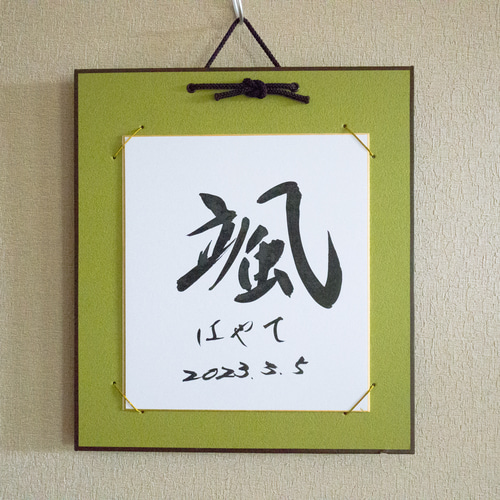 颯
はやて
2023.3.5